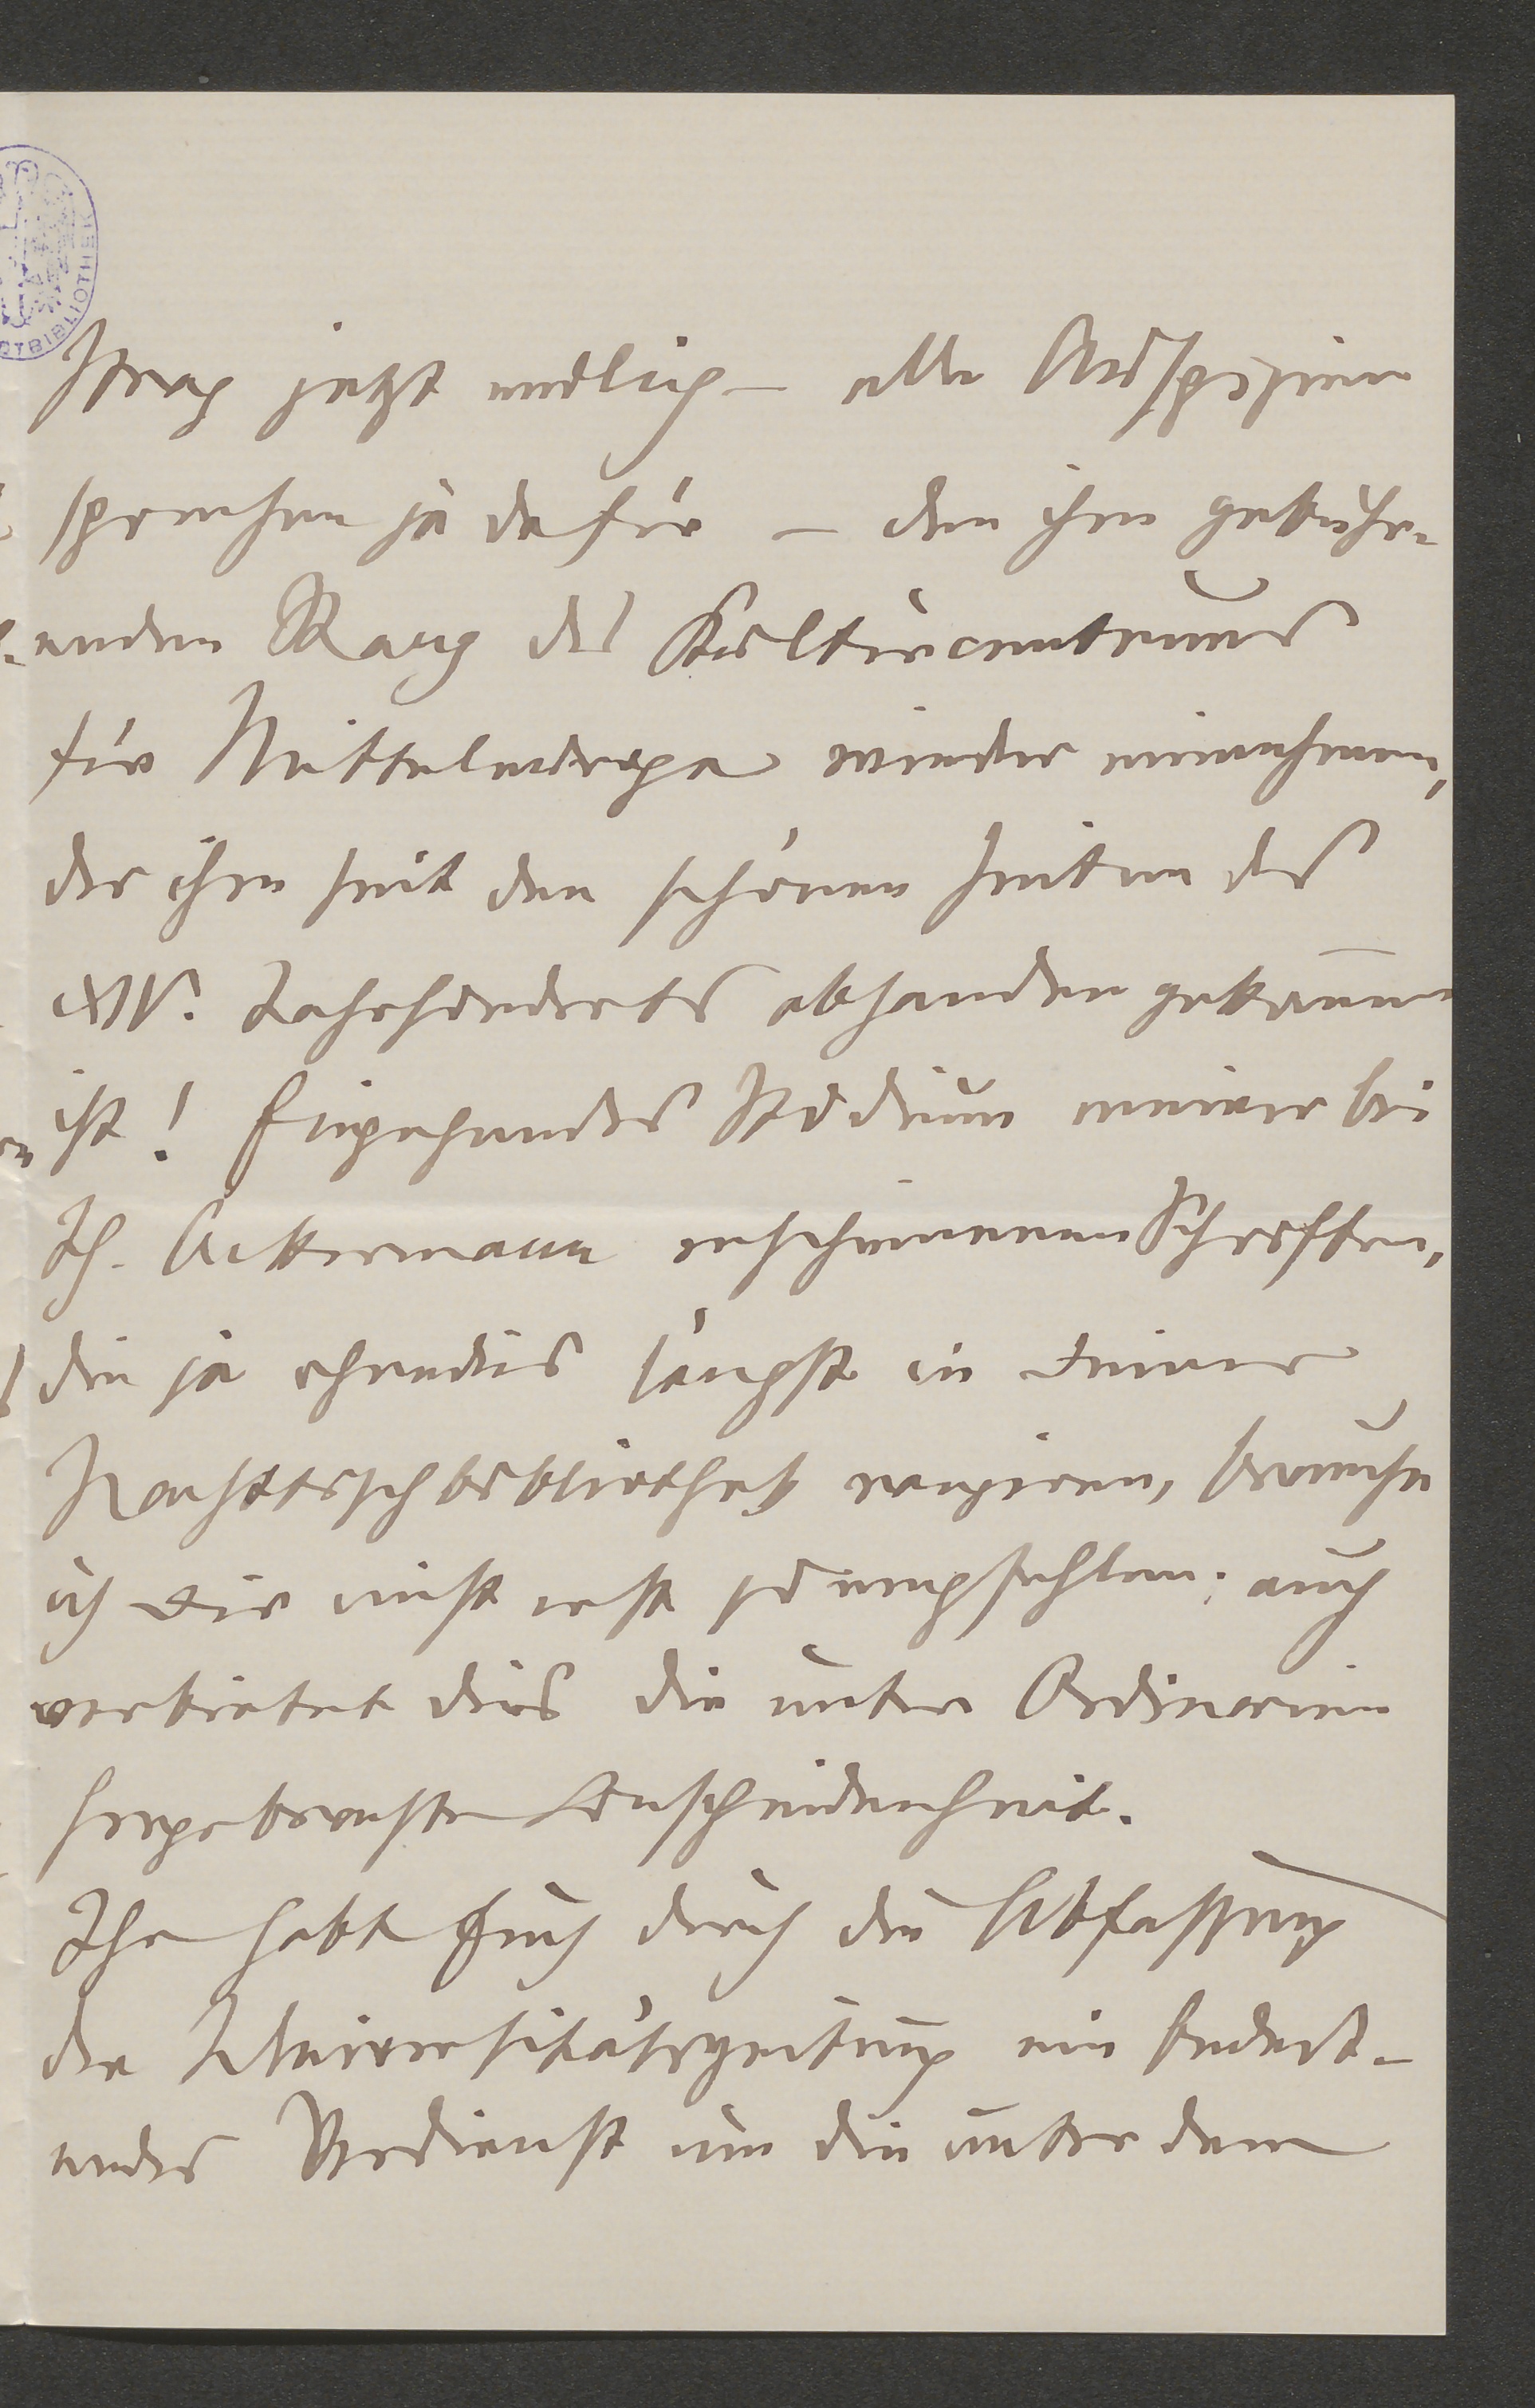 OTBIBLIOTHEK
Prag jetzt endlich – alle Auspizien
sprechen ja dafür – den ihm gebühr-
enden Rang des Kulturcentrums
für Mitteleuropa wieder einnehmen,
der ihm seit den schönen Zeiten des
XIV. Jahrhunderts abhanden gekom̅en
ist! Eingehendes Studium meiner bei
Th. Ackermann erschienenen Schriften,
die ja ohnedies längst in Deiner
Nachttischbibliothek rangiren, brauche
ich Dir nicht erst zu empfehlen; auch
verbietet dies die unter Ordinarien
hergebrachte Bescheidenheit.
Ihr habt Euch durch die Abfassung
der Universitätszeitung ein bedeut-
endes Verdienst um die unter dem